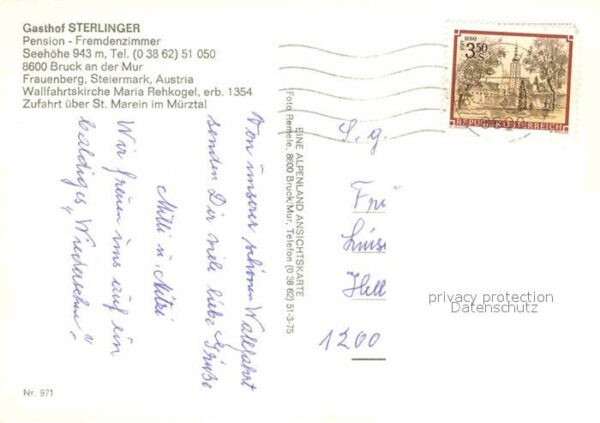 Gasthof STERLINGER
Pension - Fremdenzimmer
Seehöhe 943 m, Tel. (0 38 62) 51 050
8600 Bruck an der Mur
Frauenberg, Steiermark, Austria
Wallfahrtskirche Maria Rehkogel, erb. 1354
Zufahrt über St. Marein im Mürztal
Von unserer schönen Wallfahrt
senden Dir viele liebe Grüße
Milli u. Mitzi
Wir freuen uns auf ein
baldiges „Wiedersehn“.
EINE ALPENLAND ANSICHTSKARTE
Foto Remele, 8600 Bruck/Mur, Telefon (0 38 62) 51-3-75
3.50
S
REPUBLIK ÖSTERREICH
S. g.
Luise
Hell
1200
privacy protection
Datenschutz
Nr. 971